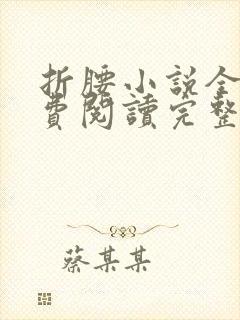 折腰小説全
費閱讀完整
蔡某某